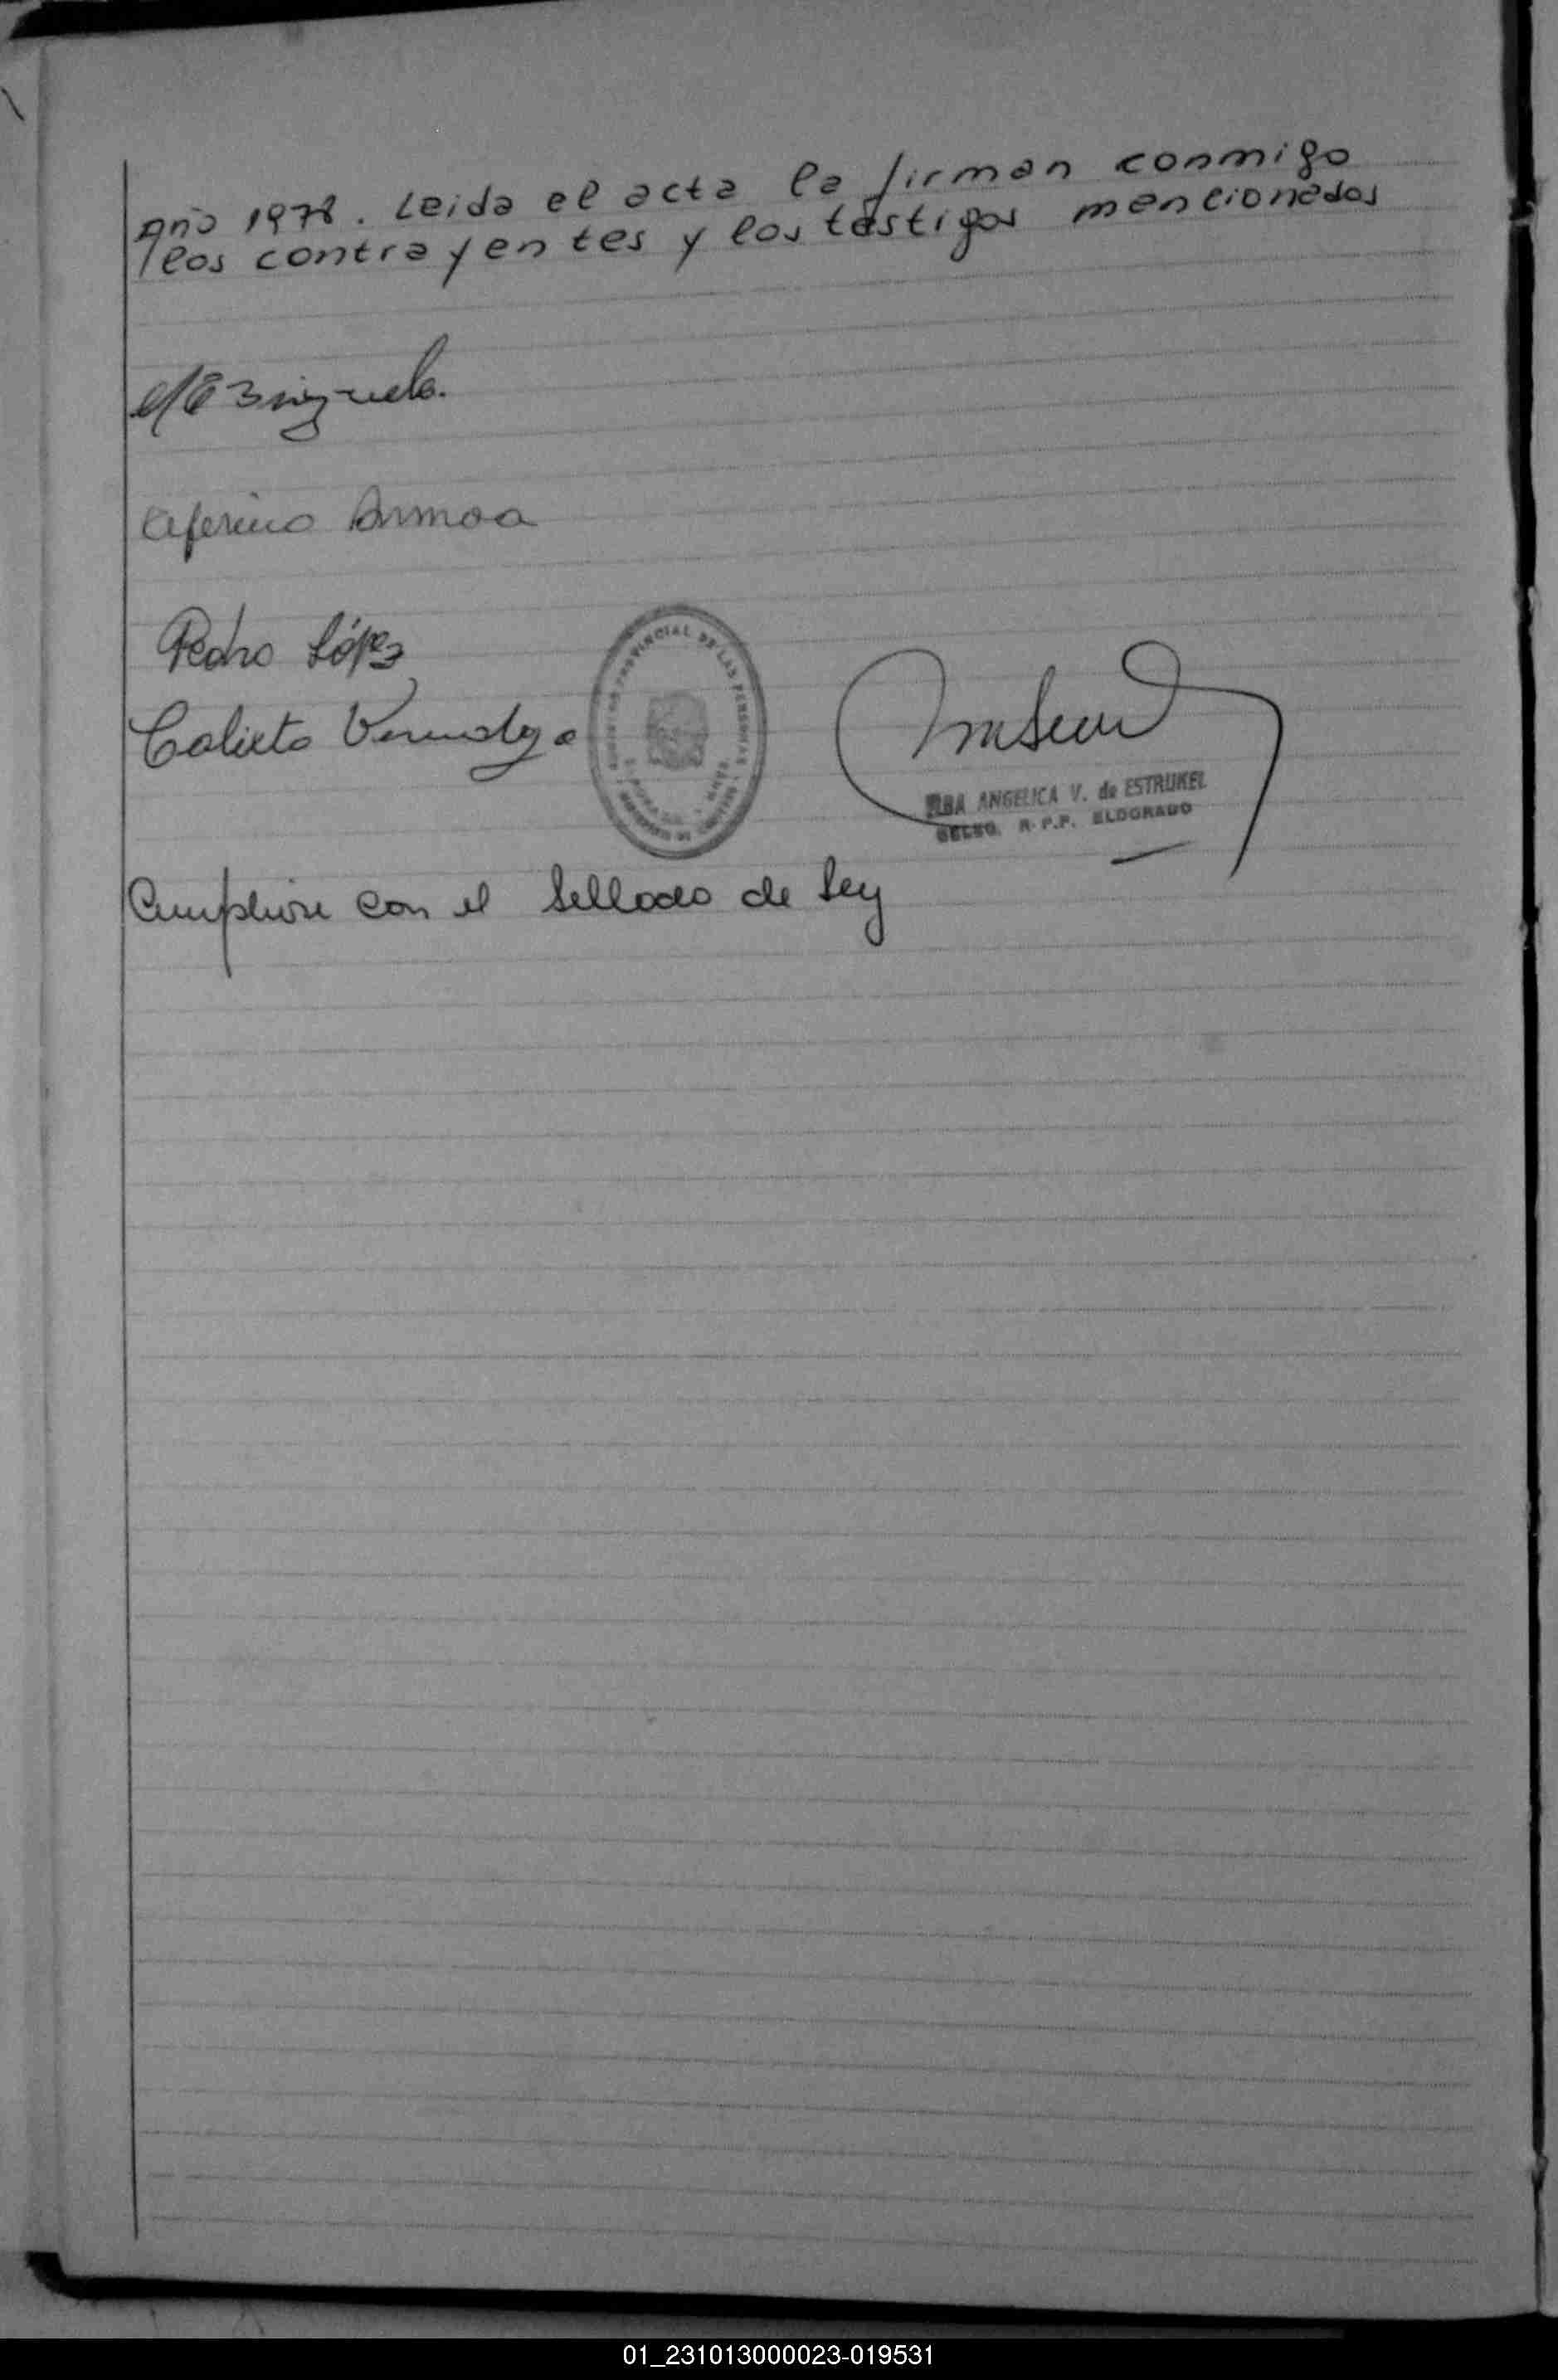 año 1978. Leida el acta la firman conmigo
los contrayentes y los testigos mencionados
Ceferino Armoa
Pedro López
REGISTRO PROVINCIAL DE LAS PERSONAS
Calixto Verendyga
ELBA ANGELICA V. de ESTRUKEL
DELEG. R.P.P. ELDORADO
Cumplióse con el Sellado de Ley
01_231013000023-019531